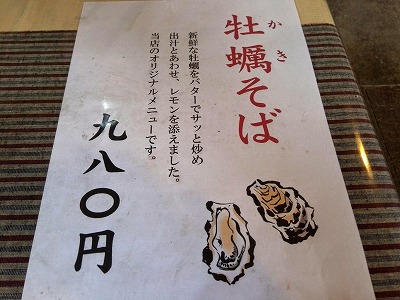 かき
牡蠣そば
新鮮な牡蠣をバターでサッと炒め
出汁とあわせ、レモンを添えました。
当店のオリジナルメニューです。
九八〇円